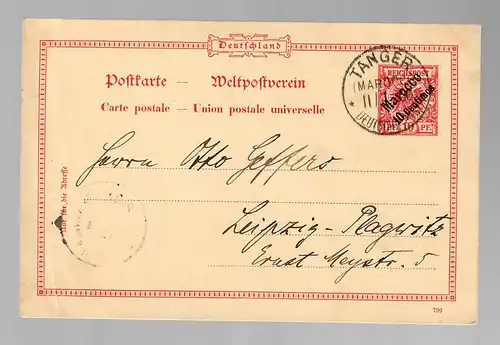 Deutschland
Postkarte — Weltpostverein
Carte postale — Union postale universelle
TANGER
(MAROCCO)
REICHSPOST
Marocco
10 Centimos
PF.
Herrn Otto Geffers
Leipzig-Plagwitz
Ernst Meystr. 5
Nur für die Adresse
799